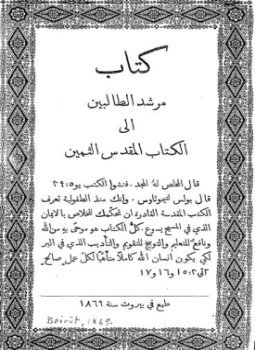 كتاب
مرشد الطالبين
الى
الكتاب المقدس الثمين
قال المخلص لهُ المجد. فتشوا الكتب يو ٥: ٣٩
قال بولس لتيموثاوس. وانك منذ الطفولية تعرف
الكتب المقدسة القادرة ان تحكمك للخلاص بالايمان
الذي في المسيح يسوع كلُّ الكتاب هو موحًى بهِ من الله
ونافعٌ للتعليم والتوبيخ للتقويم والتأديب الذي في البر
لكي يكون انسان الله كاملاً متأهباً لكل عمل صالح
٢تي ٣: ١٥ و١٦ و١٧
طبع في بيروت سنة ١٨٦٩
Beirût, 1869.